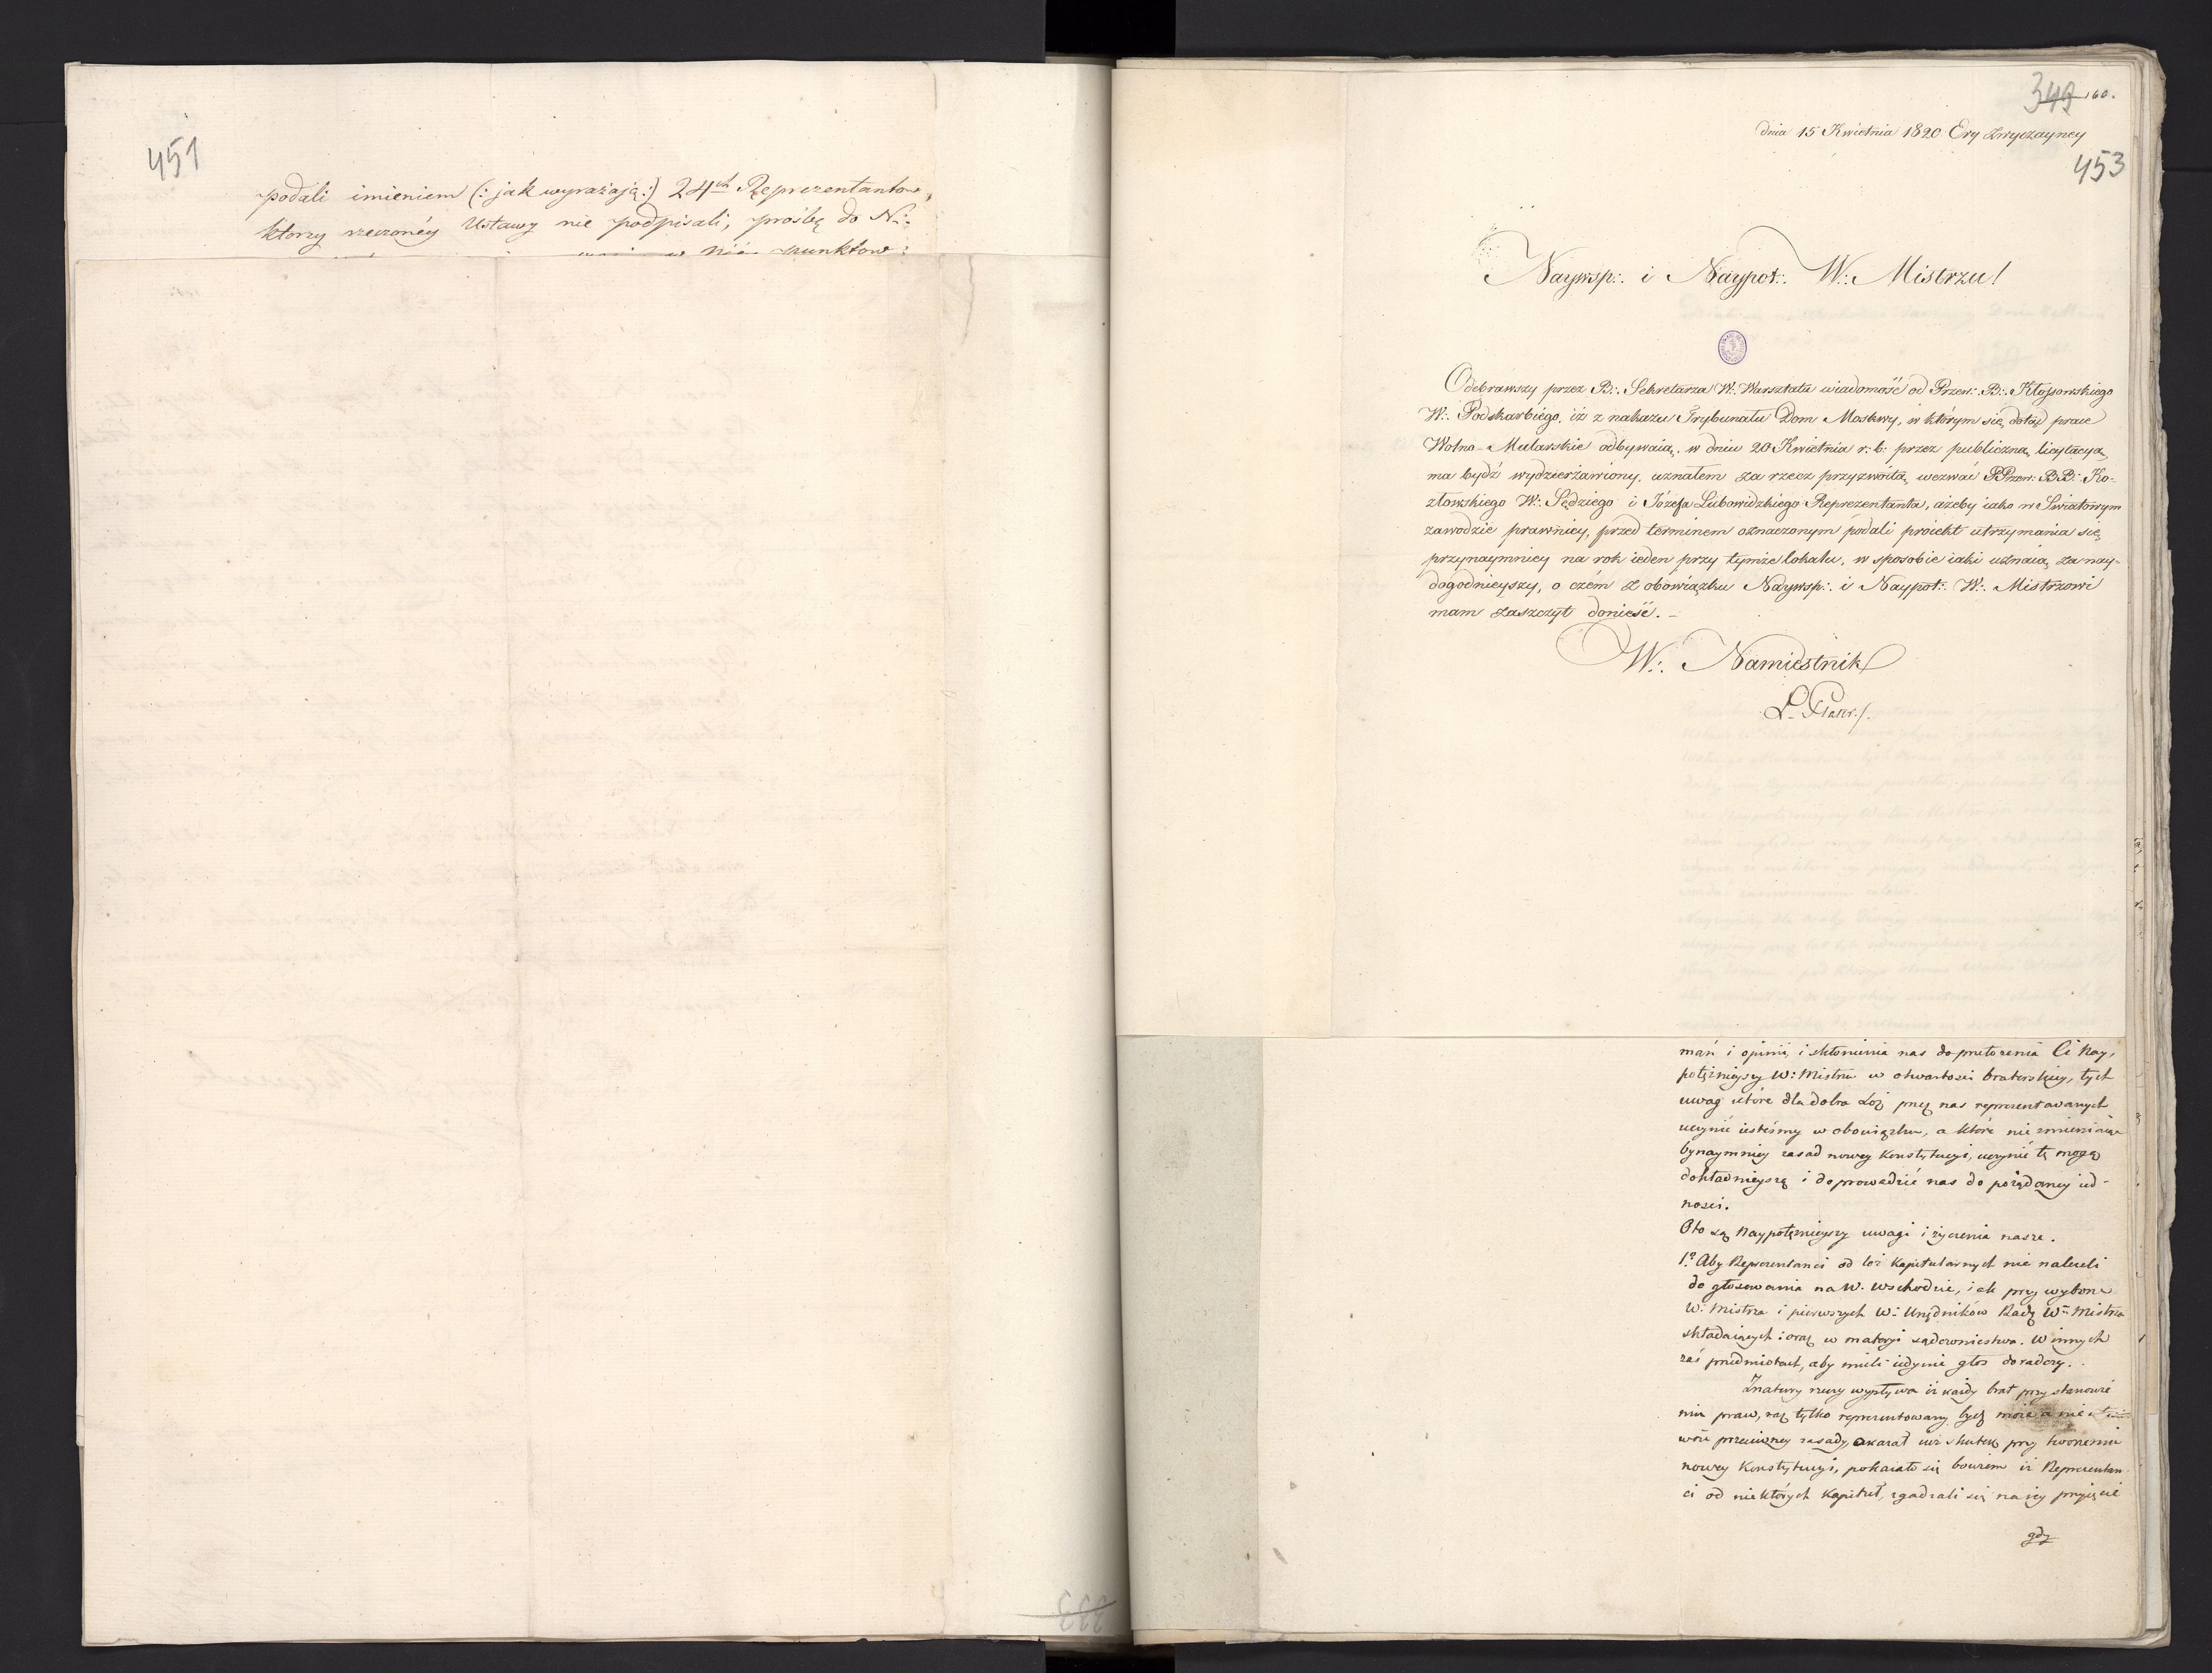 451
podali imieniem (: jak wyrażają :) 24ch Reprezentantow,
ktorzy rzeczonéy Ustawy nie podpisali, prośbę do N:
punktow:
333
349 160.
dnia 15 Kwietnia 1820 Ery zwyczayney
453
Naywsp:. i Naypot:. W:. Mistrzu!
Odebrawszy przez B:. Sekretarza W:. Warsztatu wiadomość od Przew:. B:. Kłossowskiego
W:. Podskarbiego, iż z nakazu Trybunału Dom Moskwy, w którym się dotąd prace
Wolno-Mularskie odbywaią, w dniu 20 Kwietnia r: b: przez publiczną licytacyą
ma bydź wydzierżawiony, uznałem za rzecz przyzwoitą wezwać PPrzew: BB: Ko-
złowskiego W:. Sędziego i Józefa Lubowidzkiego Reprezentanta, ażeby iako w Swiatowym
zawodzie prawnicy, przed terminem oznaczonym podali proiekt utrzymania się
przynaymniey na rok ieden przy tymże lokalu, w sposobie iaki uznaią za nay-
dogodnieyszy, o czém z obowiązku Naywsp:. i Naypot:. W:. Mistrzowi
mam zaszczyt donieść. –
W:. Namiestnik
L. Plater
mań i opinii, i skłonienia nas do przełożenia Ci Nay,
potężnieyszy W: Mistrzu w otwartosci braterskiey, tych
uwag które dla dobra Lóż przez nas reprezentowanych
uczynić iesteśmy w obowiązku, a które nie zmieniaiąc
bynaymniey zasad nowey Konstytucyi, uczynić tę mogą
dokładnieyszą i doprowadzić nas do pożądaney ied-
ności.
Oto są Naypotężnieyszy uwagi i życzenia nasze.
1.o Aby Reprezentanci od lóż kapitularnych nie należeli
do głosowania na W: Wschodzie, iak przy wyborze
W: Mistrza i pierwszych W: Urzędników Radę Wgo Mistrza
składaiących: oraz w materyi sądownictwa. W innych
zaś przedmiotach, aby mieli iedynie głos doradczy.
Z natury rzeczy wypływa iż każdy brat przy stanowie
niu praw, raz tylko reprezentowany bydź może a nie
przeciwney zasady, okazał iuż skutek przy tworzeniu
nowey Konstytucyi, pokazało się bowiem iż Reprezentan-
ci od niektórych Kapituł, zgadzali się na iey przyięcie
gdy